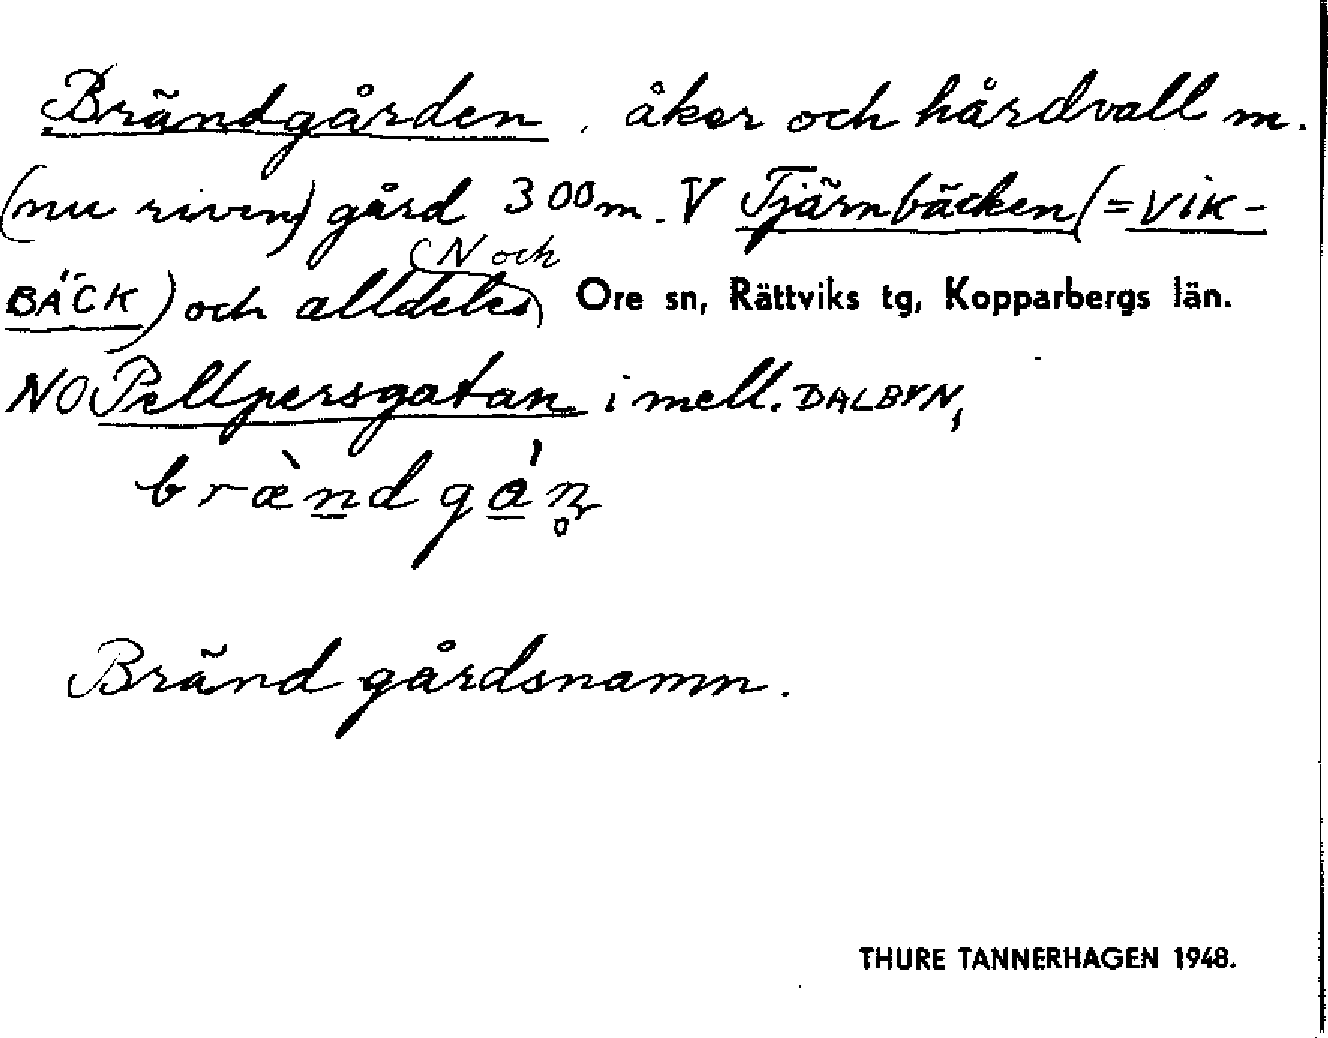 Brändgården, åker och hårdvall m.
(nu riven) gård 300 m. V Tjärnbäcken (= VIK-
BÄCK) och alldeles (N och) Ore sn, Rättviks tg, Kopparbergs län.
NO Pellpersgatan i mell. DALBYN,
bræ̀ndgán̥
Bränd gårdsnamn.
THURE TANNERHAGEN 1948.